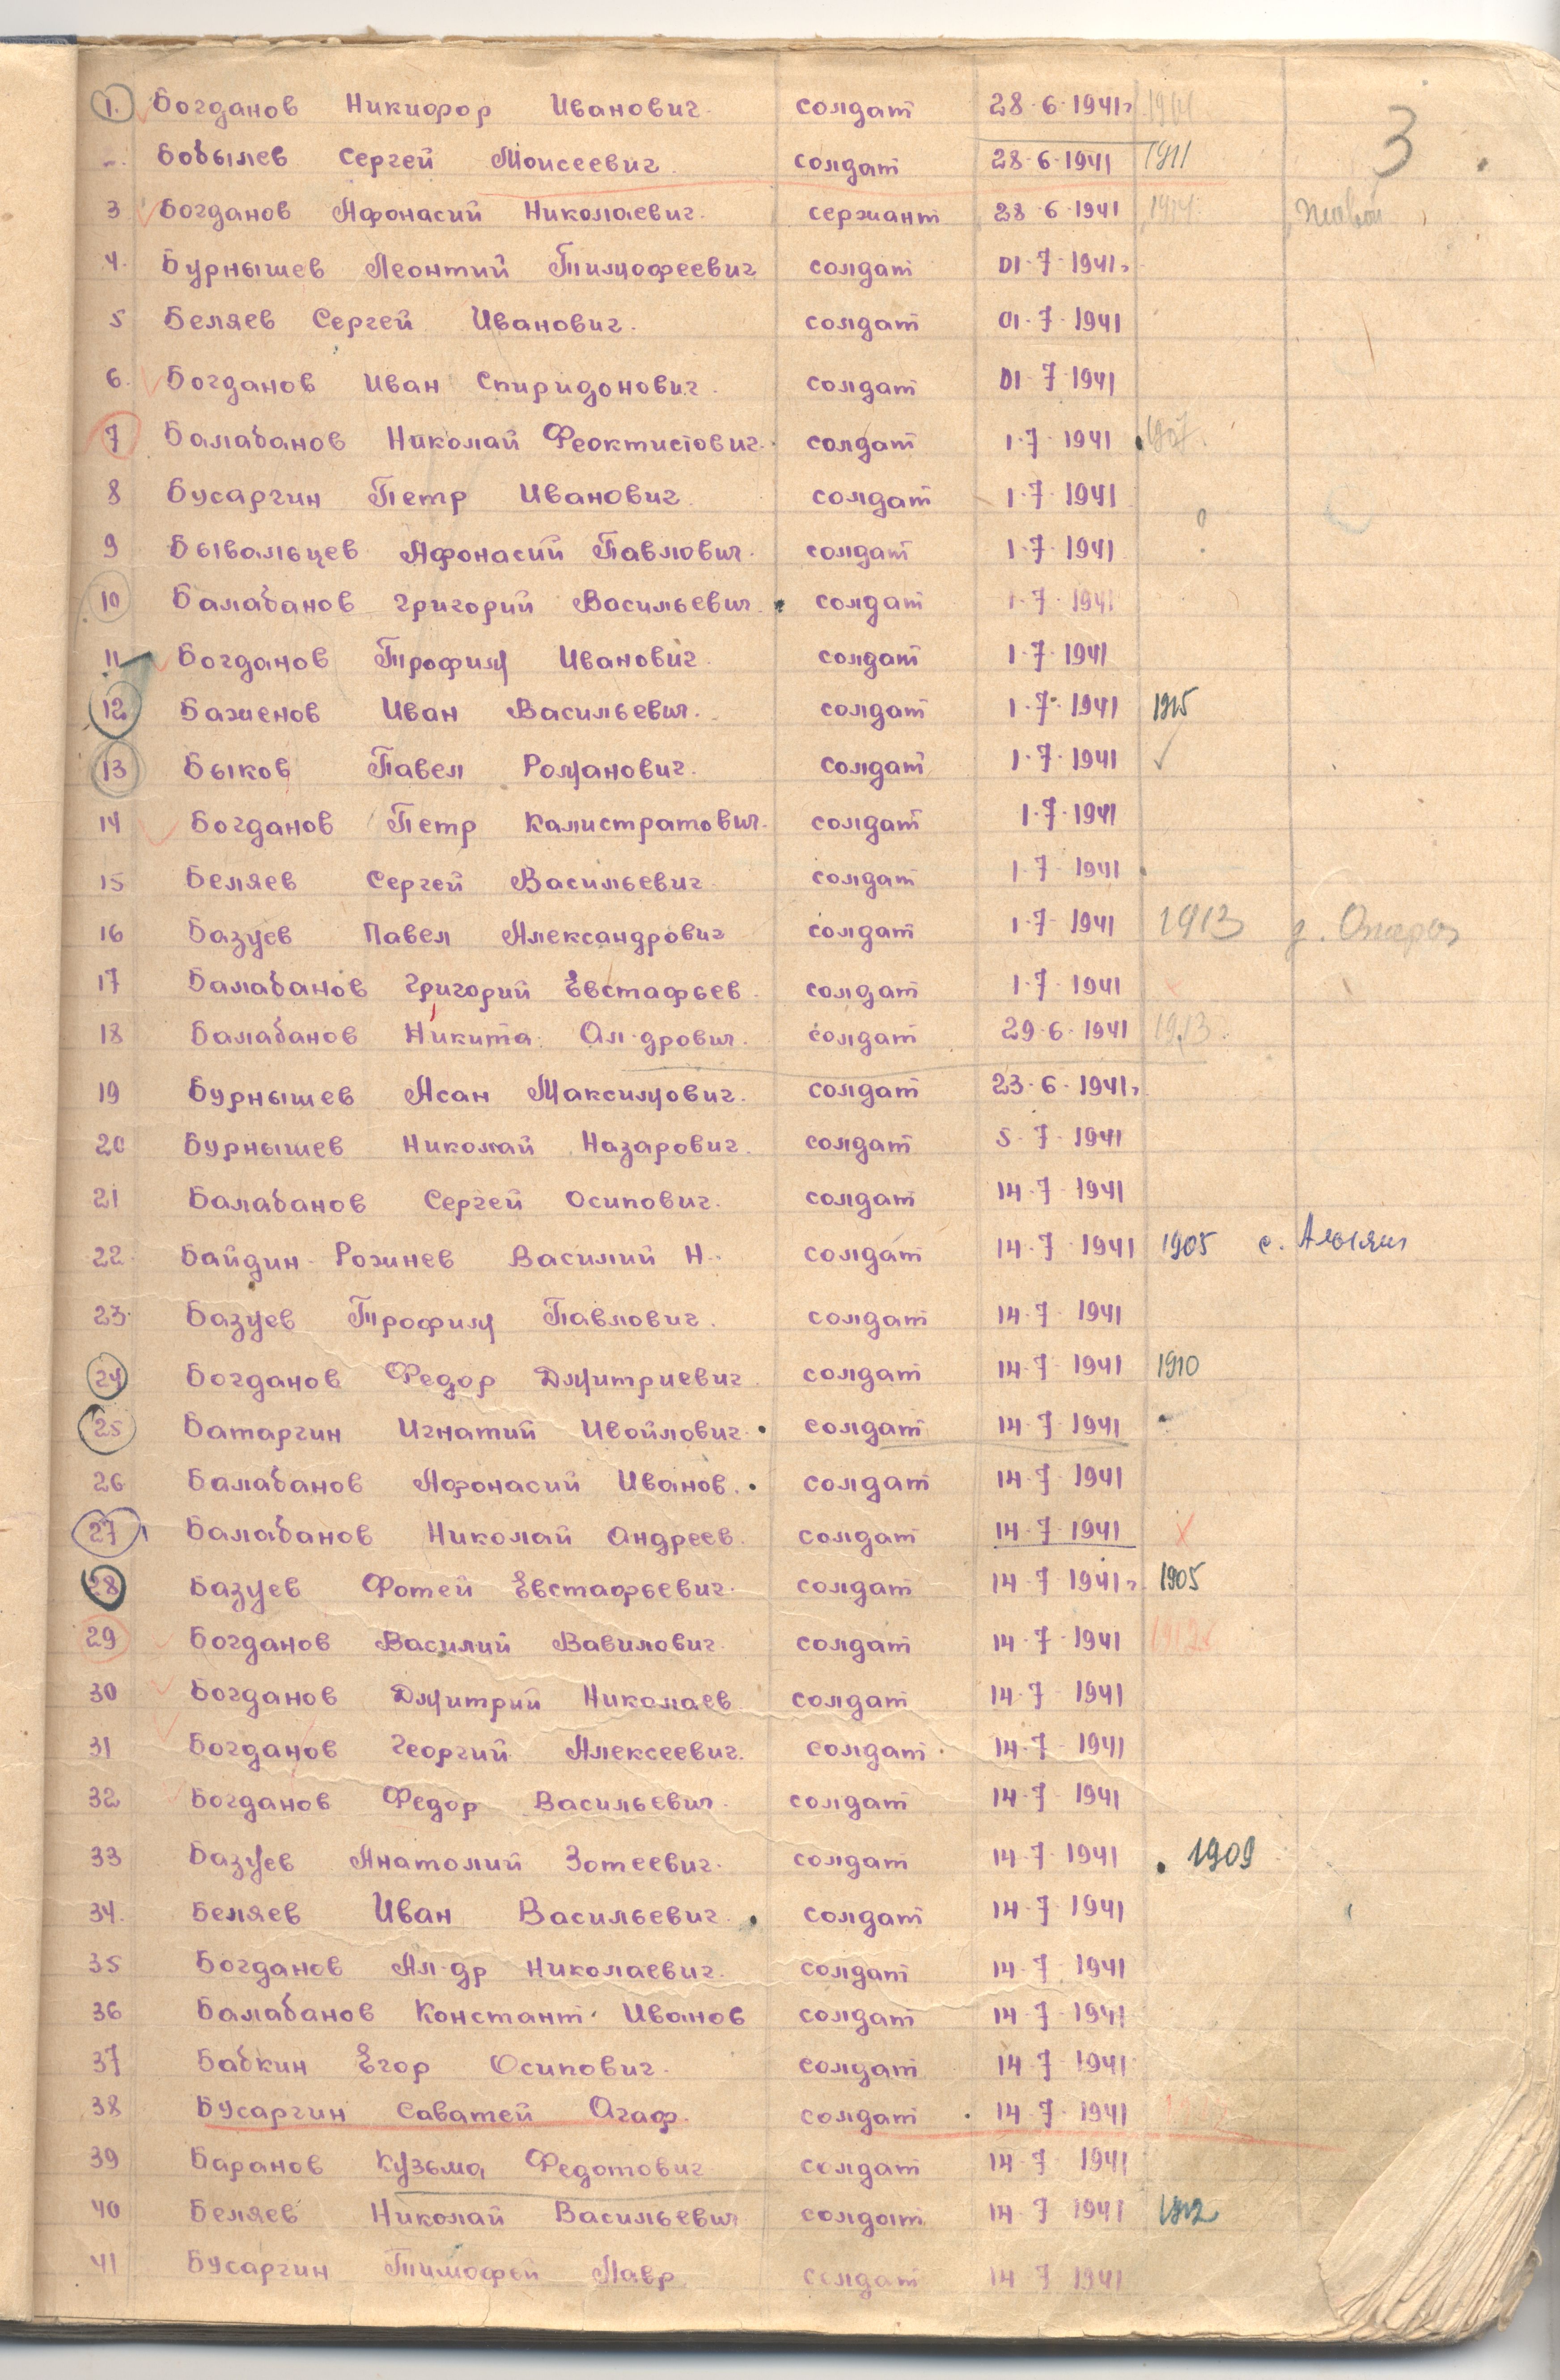 3
1. Богданов Никифор Иванович. солдат 28·6·1941г
Бобылев Сергей Моисеевич. солдат 28·6·1941 1911
3 Богданов Афонасий Николаевич. сержант 28·6·1941
4. Бурнышев Леонтий Тимофеевич солдат 01·7·1941г
5 Беляев Сергей Иванович. солдат 01·7·1941
6. Богданов Иван Спиридонович. солдат 01·7·1941
7 Балабанов Николай Феоктистович. солдат 1·7·1941 1907
8 Бусаргин Петр Иванович. солдат 1·7·1941
9 Бывальцев Афонасий Павлович. солдат 1·7·1941
10 Балабанов Григорий Васильевич. солдат 1·7·1941
11 Богданов Трофим Иванович. солдат 1·7·1941
12 Баженов Иван Васильевич. солдат 1·7·1941
13 Быков Павел Романович. солдат 1·7·1941 ✓
14 Богданов Петр Калистратович. солдат 1·7·1941
15 Беляев Сергей Васильевич солдат 1·7·1941
16 Базуев Павел Александрович солдат 1·7·1941 1913
17 Балабанов Григорий Евстафьев. солдат 1·7·1941
18 Балабанов Никита Ал·дрович. солдат 29·6·1941 1913.
19 Бурнышев Асан Максимович. солдат 23·6·1941г
20 Бурнышев Николай Назарович. солдат 5·7·1941
21 Балабанов Сергей Осипович. солдат 14·7·1941
22. Байдин-Рожнев Василий Н. солдат 14·7·1941 1905 с.
23. Базуев Трофим Павлович. солдат 14·7·1941
24 Богданов Федор Дмитриевич. солдат 14·7·1941 1910
25 Батаргин Игнатий Ивойлович. солдат 14·7·1941
26 Балабанов Афонасий Иванов. солдат 14·7·1941
27 Балабанов Николай Андреев. солдат 14·7·1941
28 Базуев Фотей Евстафьевич. солдат 14·7·1941г. 1905
29 Богданов Василий Вавилович. солдат 14·7·1941 1912
30 Богданов Дмитрий Николаев солдат 14·7·1941
31 Богданов Георгий Алексеевич. солдат 14·7·1941
32 Богданов Федор Васильевич. солдат 14·7·1941
33 Базуев Анатолий Зотеевич. солдат 14·7·1941 1909
34. Беляев Иван Васильевич. солдат 14·7·1941
35 Богданов Ал-др Николаевич. солдат 14·7·1941
36 Балабанов Констант. Иванов солдат 14·7·1941
37 Бабкин Егор Осипович. солдат 14·7·1941
38 Бусаргин Саватей Агаф. солдат 14·7·1941
39 Баранов Кузьма Федотович солдат 14·7·1941
40 Беляев Николай Васильевич солдат 14·7·1941 1912
41 Бусаргин Тимофей Лавр солдат 14·7·1941